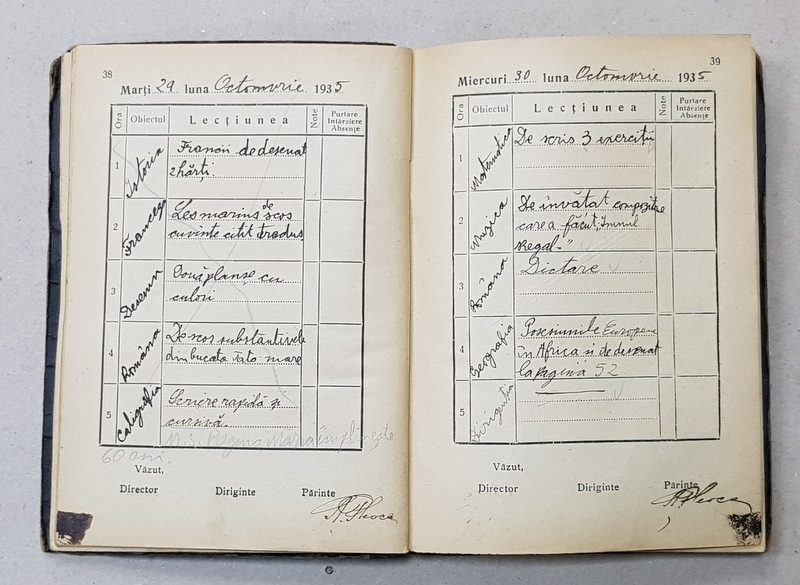 38
Marți 29 luna Octomvrie 1935
Ora Obiectul Lecțiunea Note Purtare Întârziere Absențe
1 Istoria Francii de desenat
2 hărți.
2 Franceza Les marins de scos
cuvinte citit tradus
3 Desemn Două planșe cu
culori
4 Româna De scos substantivele
din bucata Tato mare
5 Caligrafia Scriere rapilă și
cursivă.
M.S. Regina Maria împlinește
60 ani.
Văzut,
Director Diriginte Părinte
39
Miercuri 30 luna Octomvrie 1935
Ora Obiectul Lecțiunea Note Purtare Întârziere Absențe
1 Matematica De scris 3 exerciții
2 Muzica De învătat compoziție
care a făcut „Imnul
Regal-"
3 Româna Dictare
4 Geografia Posesiunile Europene
în Africa si de desenat
la pagina 52
5 Dirigenția
Văzut,
Director Diriginte Părinte